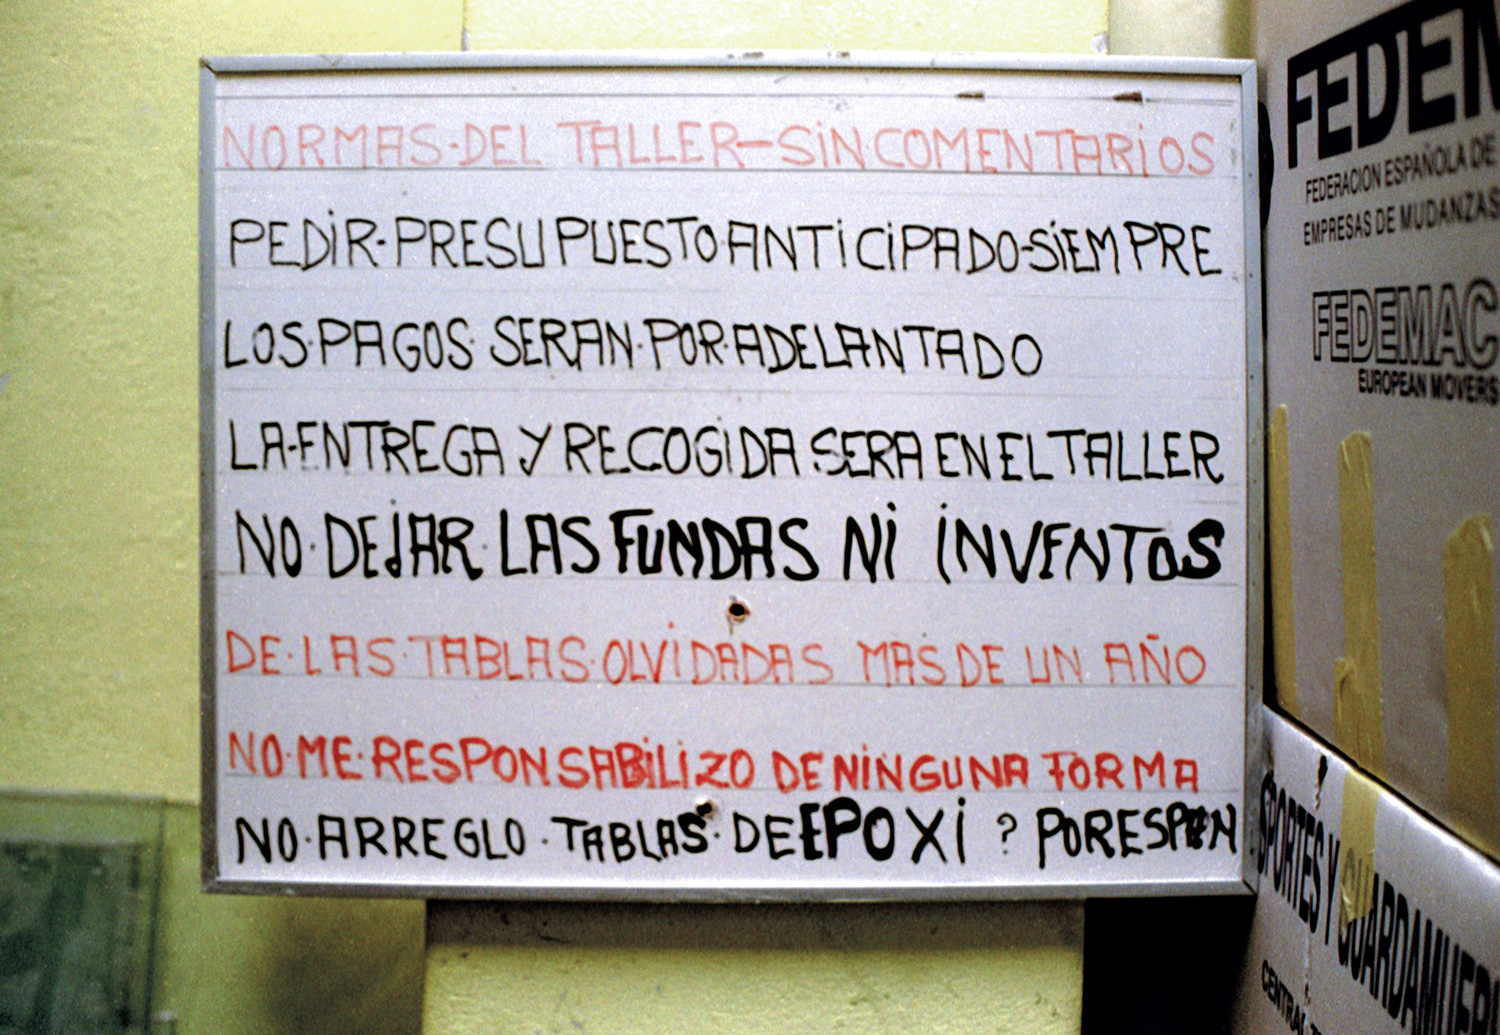 NORMAS·DEL TALLER-SiN COMENTARiOS
PEDiR-PRESUPUESTO ANTiCiPADO-SiEMPRE
LOS·PAGOS SERAN·POR·ADELANTADO
LA-ENTREGA Y RECOGiDA SERA EN EL TALLER
NO·DEJAR·LAS FUNDAS Ni iNVENTOS
DE·LAS·TABLAS·OLViDADAS MAS DE UN AÑO
NO·ME·RESPONSABiLiZO DE NiNGUNA FORMA
NO·ARREGLO·TABLAS·DE EPOXi ? POR ESPAN
FEDEM
FEDERACION ESPAÑOLA DE
EMPRESAS DE MUDANZAS
FEDEMAC
EUROPEAN MOVERS
SPORTES Y GUARDAMUEB